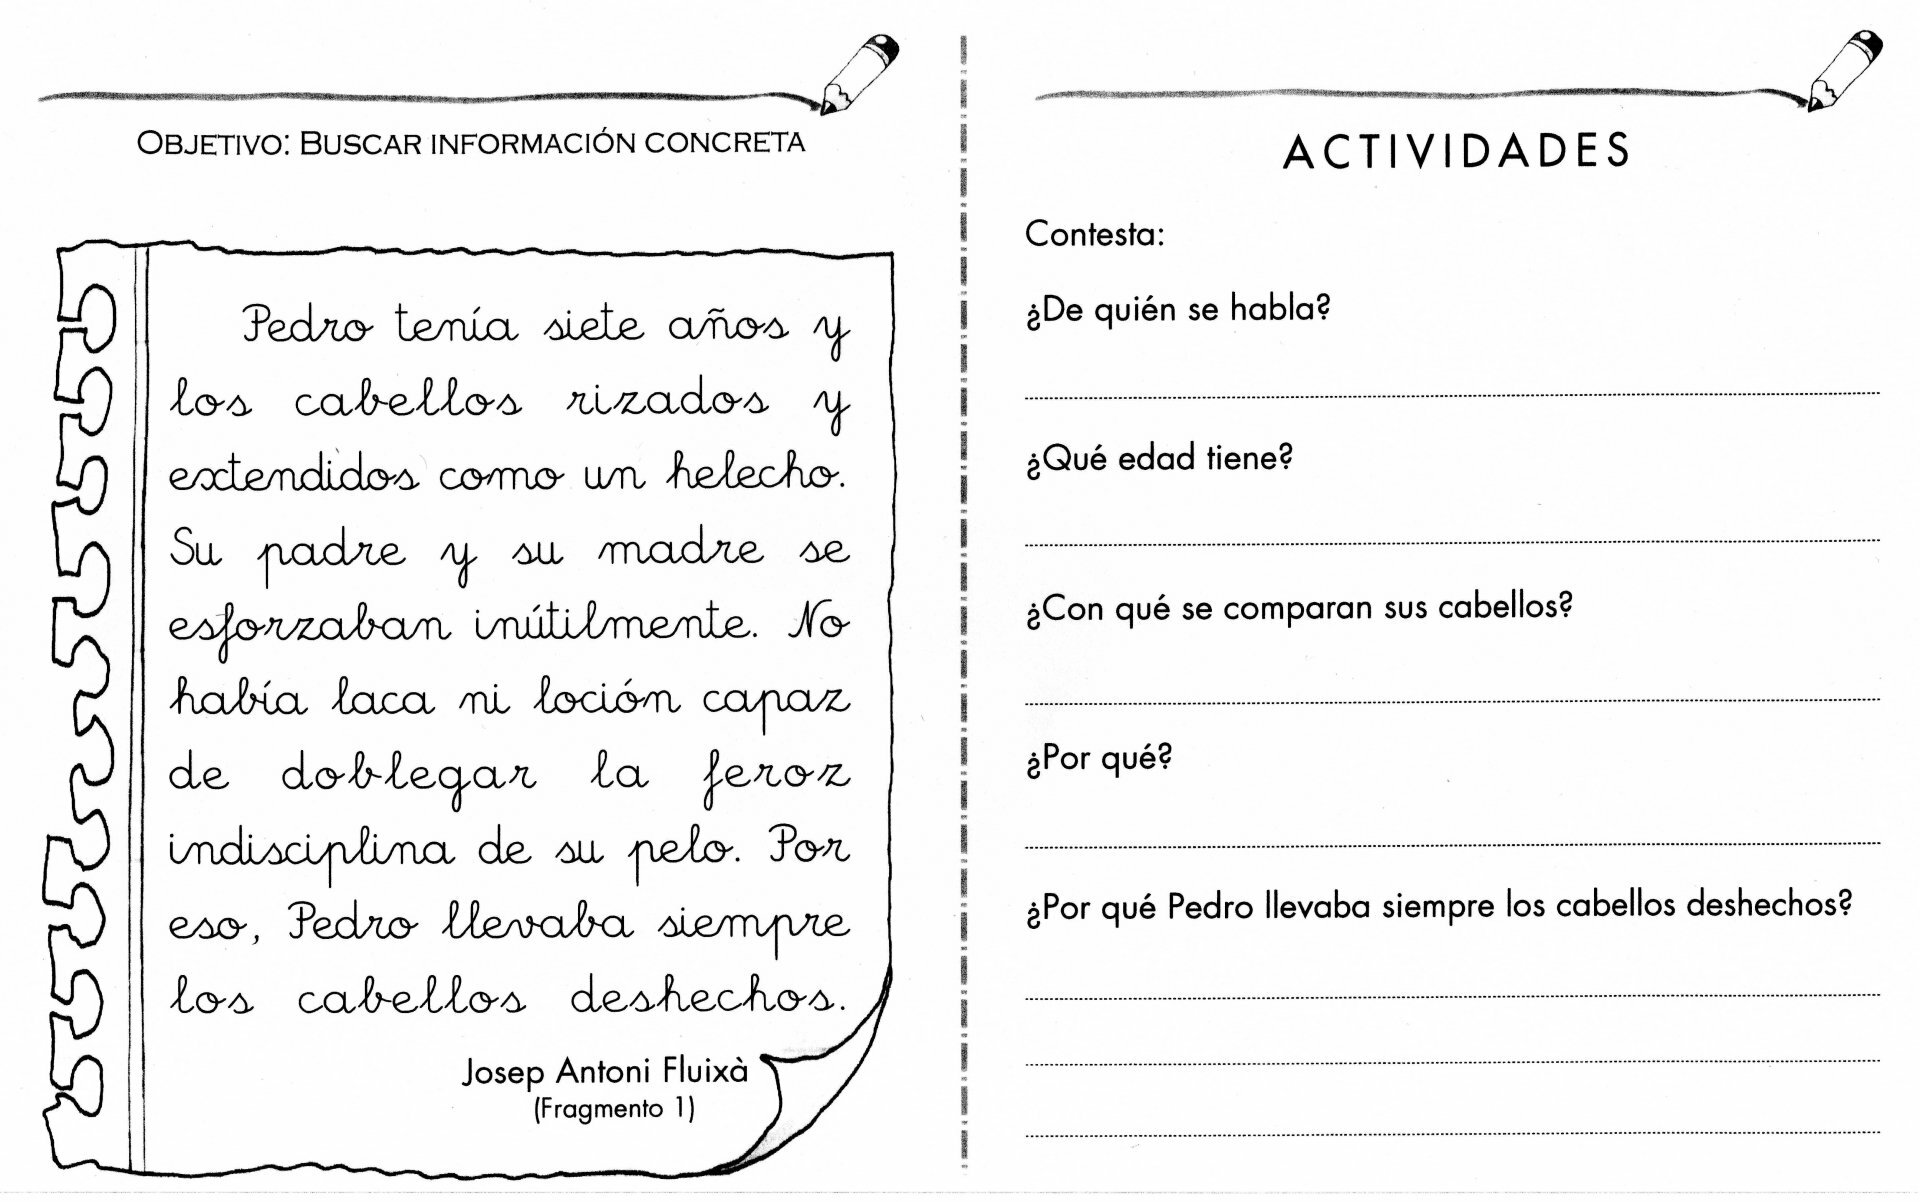 OBJETIVO: BUSCAR INFORMACIÓN CONCRETA
Pedro tenía siete años y
los cabellos rizados y
extendidos como un helecho.
Su padre y su madre se
esforzaban inútilmente. No
había laca ni loción capaz
de doblegar la feroz
indisciplina de su pelo. Por
eso, Pedro llevaba siempre
los cabellos deshechos.
Josep Antoni Fluixà
(Fragmento 1)
ACTIVIDADES
Contesta:
¿De quién se habla?
¿Qué edad tiene?
¿Con qué se comparan sus cabellos?
¿Por qué?
¿Por qué Pedro llevaba siempre los cabellos deshechos?